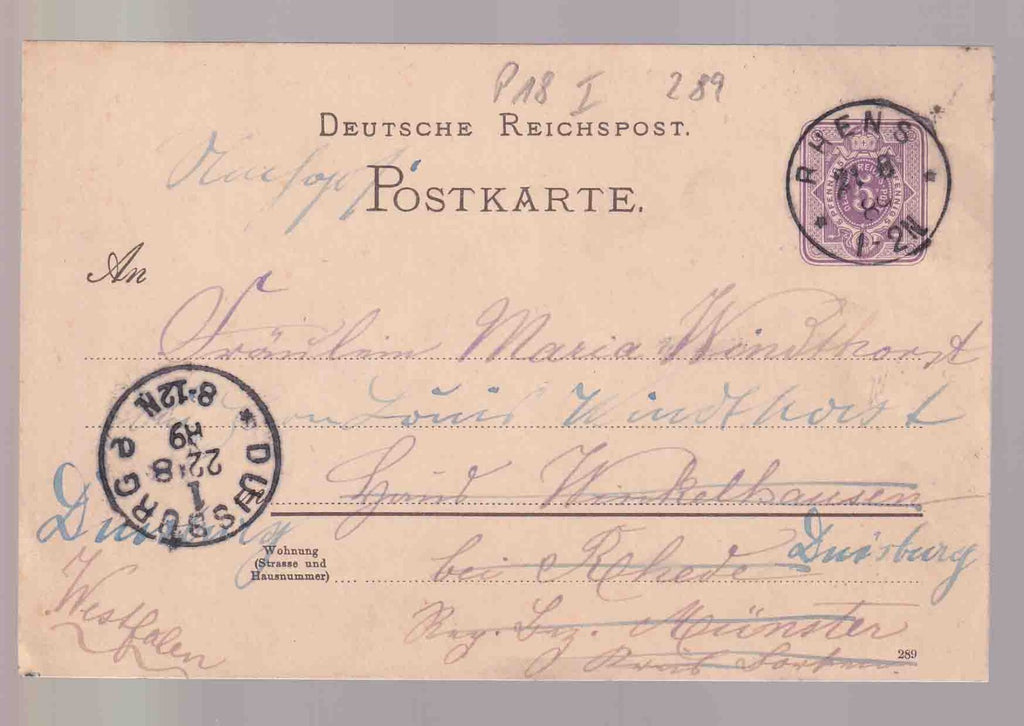 P18 I 289
DEUTSCHE REICHSPOST.
POSTKARTE.
RHENS
21 8
89
1-2N
PFENNIG 5 PFENNIG
An
Fräulein Maria Windthorst
Louis Windthorst
DUISBURG
1
22 8
89
8-12N
Haus Winkelhausen
Duisburg
Wohnung
(Strasse und
Hausnummer)
bei Rhede Duisburg
Reg. Bez. Münster
Westfalen
Kreis Borken
289